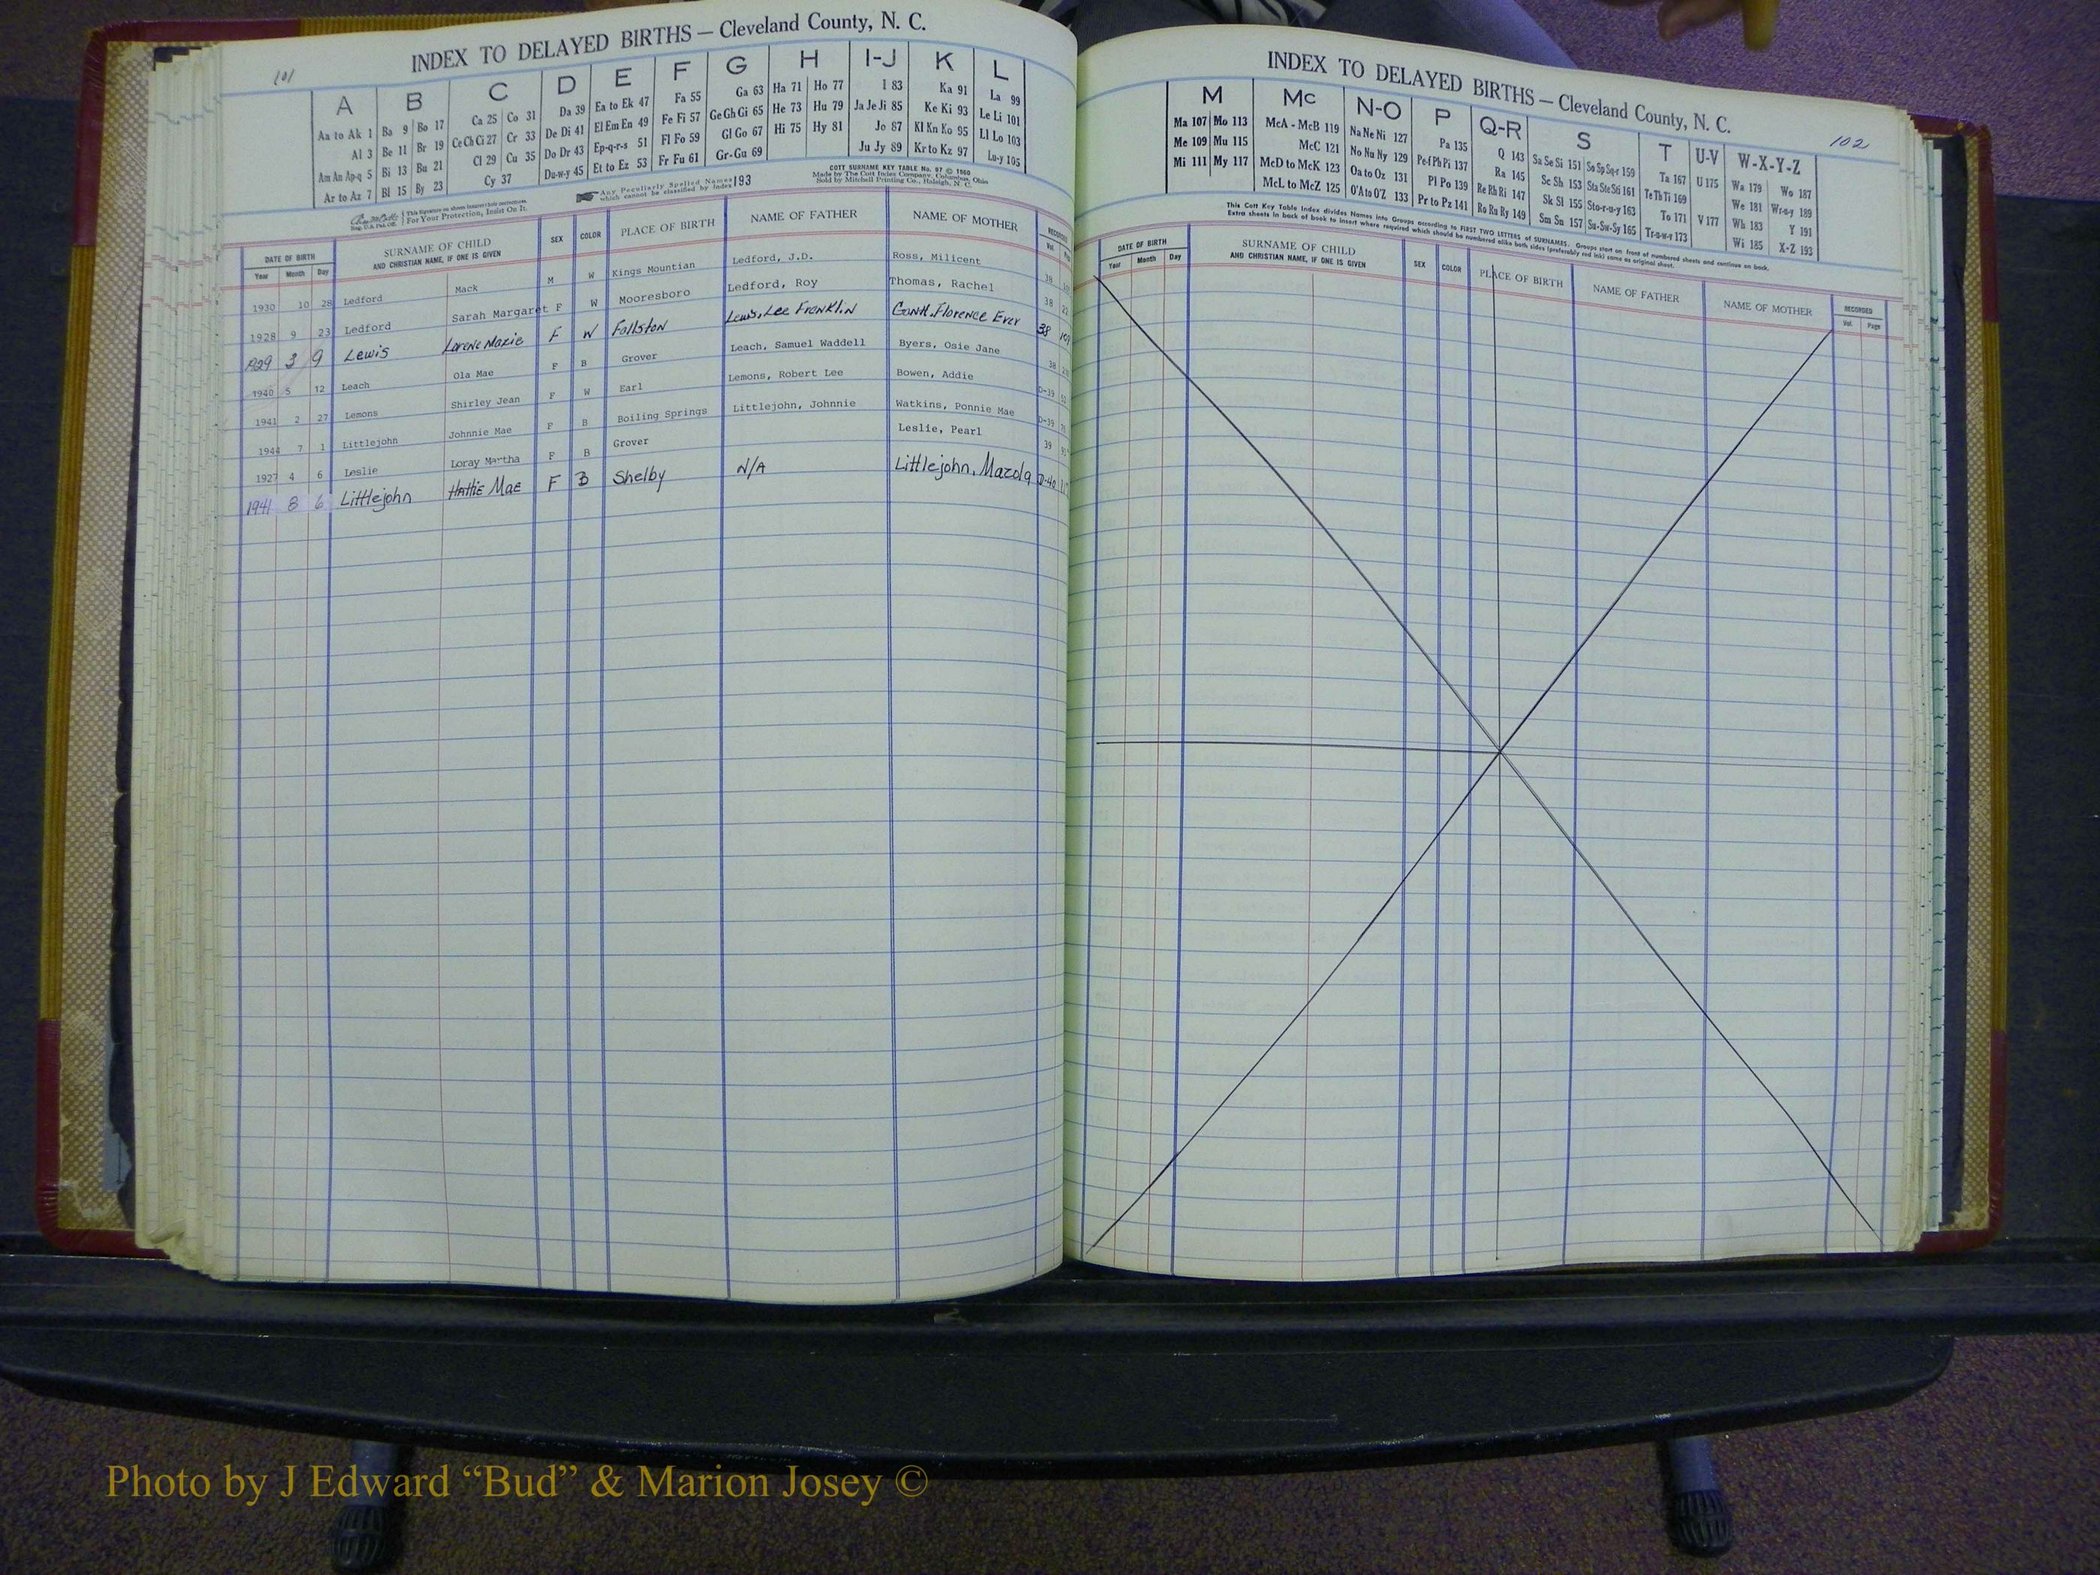 101
INDEX TO DELAYED BIRTHS — Cleveland County, N. C.
A B C D E F G H I-J K L
Aa to Ak 1 Ba 9 Bo 17 Ca 25 Co 31 Da 39 Ea to Ek 47 Fa 55 Ga 63 Ha 71 Ho 77 I 83 Ka 91 La 99
Al 3 Be 11 Br 19 Ce Ch Ci 27 Cr 33 De Di 41 El Em En 49 Fe Fi 57 Ge Gh Gi 65 He 73 Hu 79 Ja Je Ji 85 Ke Ki 93 Le Li 101
Am An Ap-q 5 Bi 13 Bu 21 Cl 29 Cu 35 Do Dr 43 Ep-q-r-s 51 Fl Fo 59 Gl Go 67 Hi 75 Hy 81 Jo 87 Kl Kn Ko 95 Ll Lo 103
Ar to Az 7 Bl 15 By 23 Cy 37 Du-w-y 45 Et to Ez 53 Fr Fu 61 Gr-Gu 69 Ju Jy 89 Kr to Kz 97 Lu-y 105
This Signature on sheets insures Cott corrections.
Reg. U.S. Pat. Off. For Your Protection, Insist On It.
Any Peculiarly Spelled Names which cannot be classified by Index 193
COTT SURNAME KEY TABLE No. 97 © 1960
Made by The Cott Index Company, Columbus, Ohio
Sold by Mitchell Printing Co., Raleigh, N. C.
DATE OF BIRTH SURNAME OF CHILD SEX COLOR PLACE OF BIRTH NAME OF FATHER NAME OF MOTHER
Year Month Day AND CHRISTIAN NAME, IF ONE IS GIVEN Vol.
1930 10 28 Ledford Mack M W Kings Mountian Ledford, J.D. Ross, Milicent 38
1928 9 23 Ledford Sarah Margaret F W Mooresboro Ledford, Roy Thomas, Rachel 38
1929 3 9 Lewis Lorene Maxie F W Fallston Lewis, Lee Franklin Gantt, Florence Ever 38
1940 5 12 Leach Ola Mae F B Grover Leach, Samuel Waddell Byers, Osie Jane 38
1941 2 27 Lemons Shirley Jean F W Earl Lemons, Robert Lee Bowen, Addie D-39
1944 7 1 Littlejohn Johnnie Mae F B Boiling Springs Littlejohn, Johnnie Watkins, Ponnie Mae D-39
1927 4 6 Leslie Loray Martha F B Grover Leslie, Pearl 39
1941 8 6 Littlejohn Hattie Mae F B Shelby N/A Littlejohn, Mazola D-40
INDEX TO DELAYED BIRTHS — Cleveland County, N. C.
102
M Mc N-O P Q-R S T U-V W-X-Y-Z
Ma 107 Mo 113 McA - McB 119 Na Ne Ni 127 Pa 135 Q 143 Sa Se Si 151 So Sp Sq-r 159 Ta 167 U 175 Wa 179 Wo 187
Me 109 Mu 115 McC 121 No Nu Ny 129 Pe-f Ph Pi 137 Ra 145 Sc Sh 153 Sta Ste Sti 161 Te Th Ti 169 We 181 Wr-u-y 189
Mi 111 My 117 McD to McK 123 Oa to Oz 131 Pl Po 139 Re Rh Ri 147 Sk Sl 155 Sto-r-u-y 163 To 171 V 177 Wh 183 Y 191
McL to McZ 125 O'A to O'Z 133 Pr to Pz 141 Ro Ru Ry 149 Sm Sn 157 Su-Sw-Sy 165 Tr-u-w-y 173 Wi 185 X-Z 193
This Cott Key Table Index divides Names into Groups according to FIRST TWO LETTERS of SURNAMES. Groups start on front of numbered sheets and continue on back.
Extra sheets in back of book to insert where required which should be numbered alike both sides (preferably red ink) same as original sheet.
DATE OF BIRTH SURNAME OF CHILD SEX COLOR PLACE OF BIRTH NAME OF FATHER NAME OF MOTHER RECORDED
Year Month Day AND CHRISTIAN NAME, IF ONE IS GIVEN Vol. Page
Photo by J Edward “Bud” & Marion Josey ©